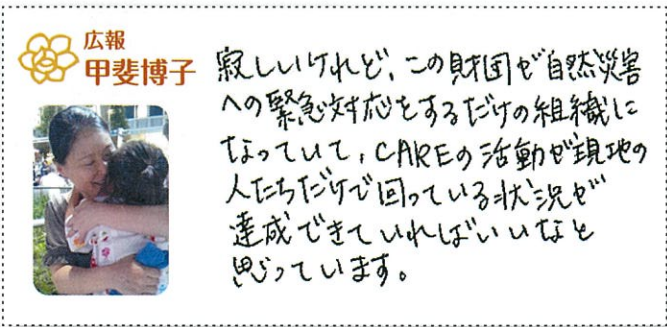 広報
甲斐博子
寂しいけれど、この財団が自然災害
への緊急対応をするだけの組織に
なっていて、CAREの活動が現地の
人たちだけで回っている状況が
達成できていればいいなと
思っています。